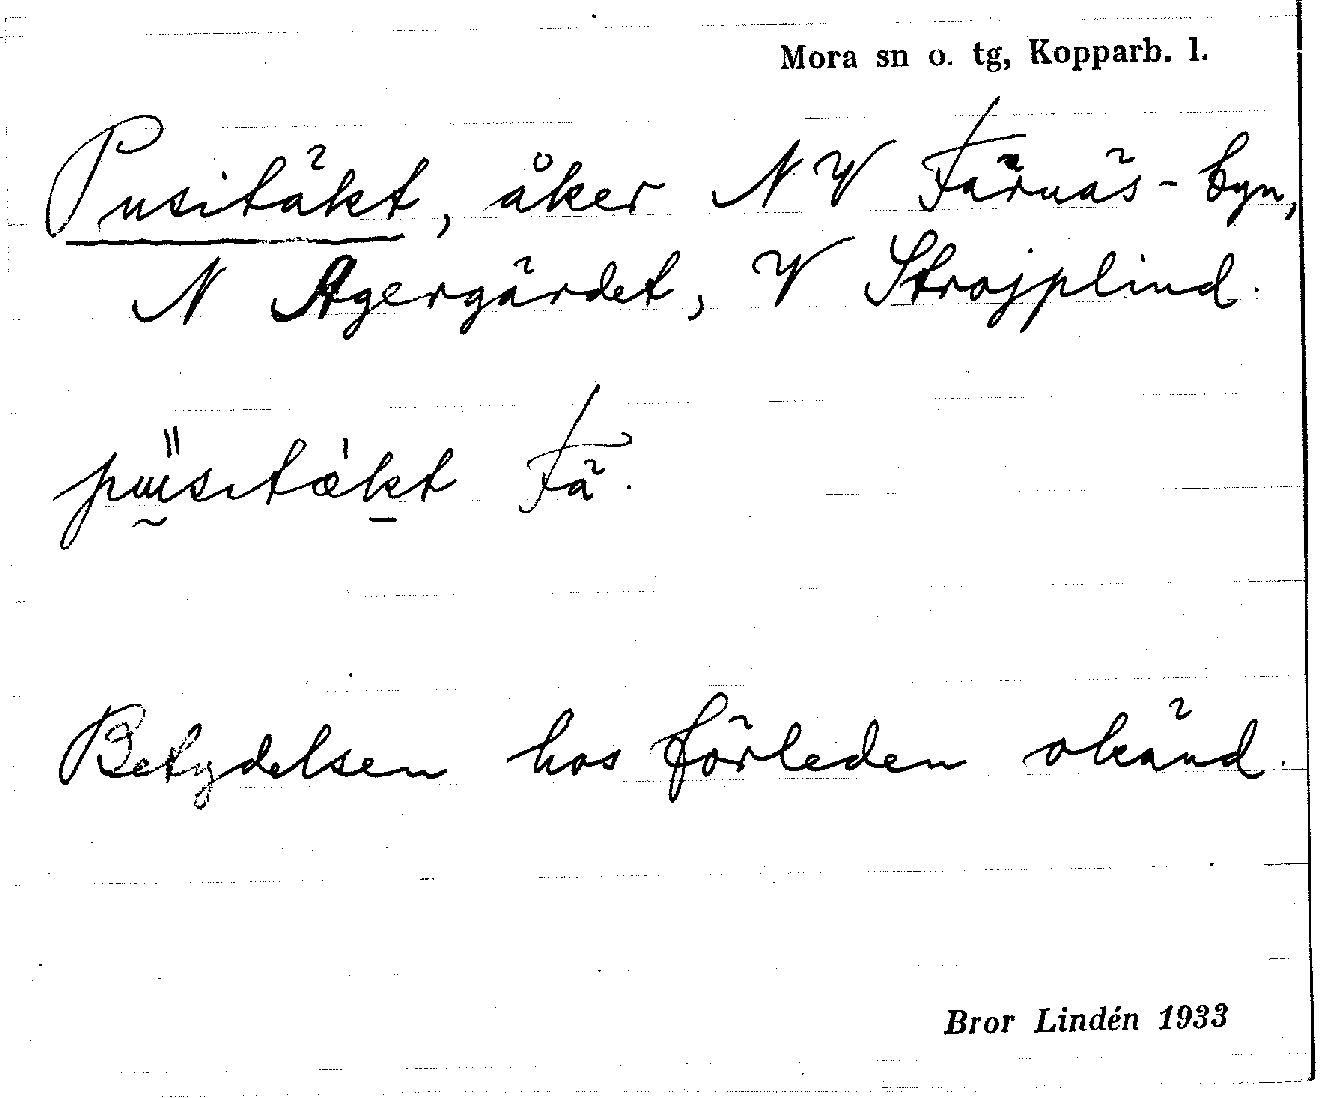 Mora sn o. tg, Kopparb. l.
Pusitäkt, åker NV Färnäs-byn,
N Agergärdet, V Strojplind.
Fä.
Betydelsen hos förleden okänd.
Bror Lindén 1933